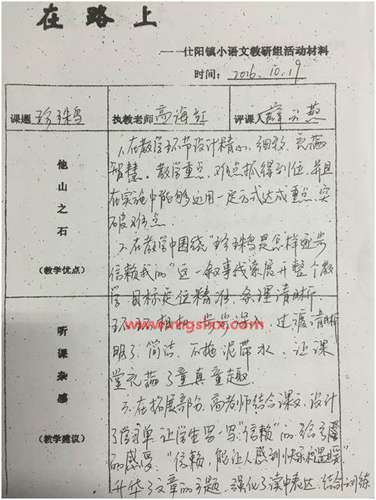 在路上
——仕阳镇小语文教研组活动材料
时间：2016.10.19
课题 珍珠鸟 执教老师 高海虹 评课人
他山之石
（教学优点）
1、在教学环节设计精心、细致、充满
智慧。教学重点、难点抓得到位，并且
在实施中能够运用一定方式达成重点，突
破难点
2、在教学中围绕"珍珠鸟是怎样逐步
信赖我的"这一叙事线索展开整个教
学 目标定位精准，条理清晰，
过渡清晰
明了、简洁、不拖泥带水，让课
堂充满了童真童趣
听课杂感
（教学建议）
3、在拓展部分，高老师结合课文，设计
了学习单 让学生写一写"信赖"
的感受，"信赖，能让人感到
升华了文章的主题，强化了读中表达，结合训练
www.rngshx.com